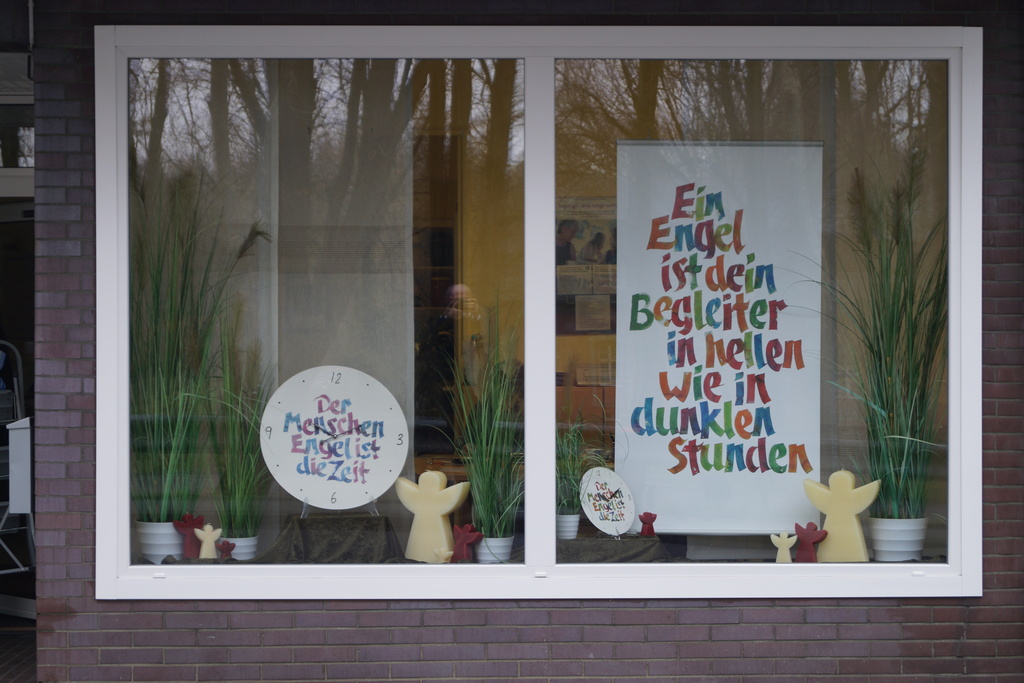 12
9
3
6
Der
Menschen
Engel ist
die Zeit
Der
Menschen
Engel ist
die Zeit
Ein
Engel
ist dein
Begleiter
in hellen
wie in
dunklen
Stunden